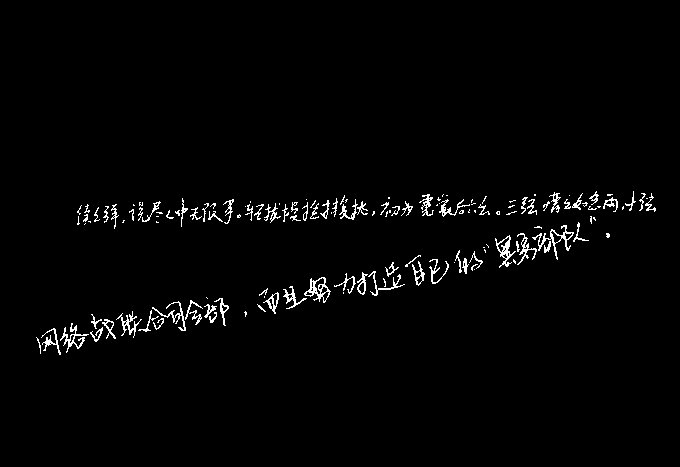 续续弹,说尽心中无限事。轻拢慢捻抹复挑,初为霓裳后六幺。大弦嘈嘈如急雨,小弦
网络战联合司令部,而且努力打造自己的“黑客部队”。